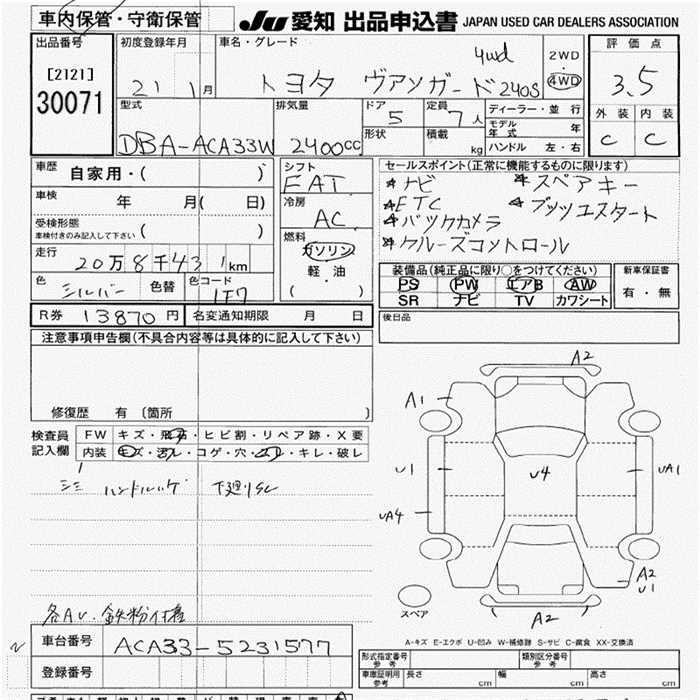 車内保管・守衛保管
JU 愛知 出品申込書 JAPAN USED CAR DEALERS ASSOCIATION
出品番号
[2121]
30071
初度登録年月
21 1月
車名・グレード
4wd
トヨタ ヴァンガード 240S
2WD
・
4WD
評価点
3.5
外装 内装
C C
型式
DBA-ACA33W
排気量
2400cc
ドア
5
定員
7人
形状
積載
kg
ディーラー・並行
モデル年式 年
ハンドル 左・右
車歴
自家用・( )
車検
年 月( 日)
受検形態
車検付きのみ記入して下さい ( )
走行
20万8千431km
色
シルバー
色替
色コード
1F7
シフト
FAT
冷房
AC
燃料
ガソリン
軽・油
( )
セールスポイント(正常に機能するものに限ります)
*ナビ *スペアキー
*ETC *プッシュスタート
*バックカメラ
*クルーズコントロール
装備品(純正品に限り○をつけてください)
PS PW エアB AW
SR ナビ TV カワシート
新車保証書
有・無
R券 13870円
名変通知期限 月 日
後日品
注意事項申告欄(不具合内容等は具体的に記入して下さい)
修復歴 有〔箇所 〕
検査員
記入欄
FW キズ・飛石・ヒビ割・リペア跡・X要
内装 キズ・汚レ・コゲ・穴・スレ・キレ・破レ
シミ ハンドルハゲ 下廻りSC
各AU、鉄粉付着
A2
A1
U1
U4
UA1
UA4
A2
U1
A2
スペア
A-キズ E-エクボ U-凹み W-補修跡 S-サビ C-腐食 XX-交換済
車台番号 ACA33-5231577
登録番号
型式指定番号
参考
類別区分番号
参考
車庫証明用
参考
長さ cm
幅 cm
高さ cm